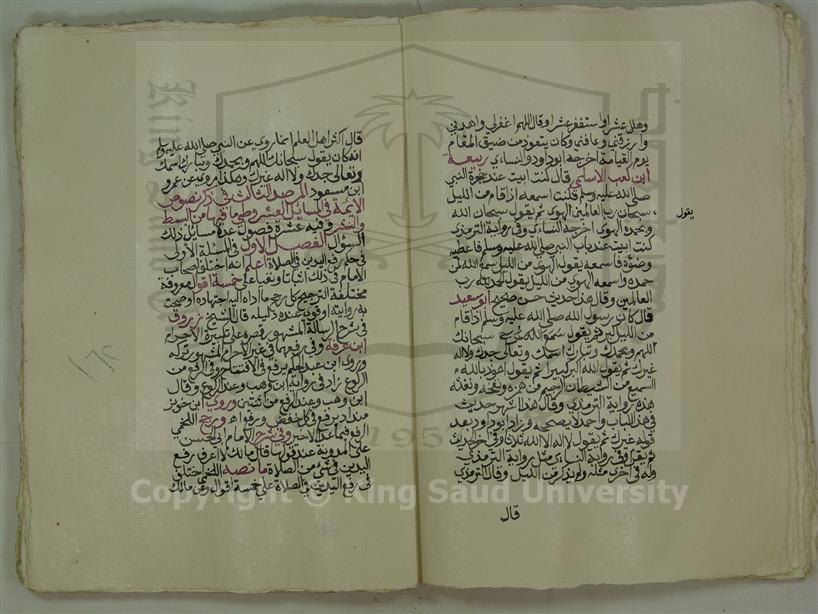 وهلل عشرا واستغفر عشرا وقال اللهم اغفر لي واهدني
وارزقني وعافني وكان يتعوذ من ضيق المقام
يوم القيامة اخرجه ابوداود والنساءي ربيعة
ابن كعب الاسلمي قال كنت ابيت عند حجرة النبي
صلى الله عليه وسلم فكنت اسمعه اذا قام من الليل
يقول
سبحان رب العالمين الهوي ثم يقول سبحان الله
وبحمده الهوي اخرجه النساءي وفي رواية الترمذي
كنت ابيت عند باب النبي صلى الله عليه وسلم فاعطيه
وضوءه فاسمعه يقول الهوي من الليل سمع الله لمن
حمده واسمعه الهوي من الليل يقول الحمد لله رب
العالمين وقال هذا حديث حسن صحيح ابو سعيد
قال كان رسول الله صلى الله عليه وسلم اذا قام
من الليل كبر ثم يقول سبحانك
اللهم وبحمدك وتبارك اسمك وتعالى جدك ولا اله
غيرك ثم يقول الله اكبر كبيرا ثم يقول اعوذ بالله
السميع من الشيطان الرجيم من همزه ونفخه ونفثه
هذه رواية الترمذي وقال هذا اشهر حديث
في هذا الباب واحمد لا يصححه وزاد ابو داود بعد
قوله غيرك ثم يقول لا اله الا الله ثلاثا وفي اخر الحديث
ثم يقرا وفي رواية النساءي مثل رواية الترمذي
وله في اخرى مثله ولم يذكر من الليل وقال الترمذي
قال
قال اكثر اهل العلم انما روي عن النبي صلى الله عليه وسلم
انه كان يقول سبحانك اللهم وبحمدك وتبارك اسمك
وتعالى جدك ولا اله غيرك وهكذا روي عن عمر و
ابن مسعود المرصد الثالث في ذكر نصوص
الايمة في المسايل العشر وما فيها من البسط
والنشر وفيه عشرة فصول عدة مسائل ذلك
السؤال الفصل الاول في المسئلة الاولى
في حكم رفع اليدين في الصلاة اعلم انه اختلف اصحاب
الامام في ذلك اثباتا ونفيا على خمسة اقوال معروفة
مختلفة الترجيح كل رجح ما اداه اليه اجتهاده وصحت
به روايته وقوي عنده دليله قال الشيخ زروق
في شرح الرسالة المشهور قصره على تكبيرة الاحرام
ابن عرفة وفي رفعهما في غير الاحرام المشهور تركه
وروى ابن عبد الحكم يرفع في الافتتاح وفي الرفع من
الركوع زاد في رواية ابن وهب وعند الركوع وقال
ابن وهب وعند الرفع من اثنتين وروى ابن خويز
منداد يرفع في كل خفض ورفع ورجح اللخمي
الرفع فيما عدا الاخير وفي شرح الامام ابي الحسن
على المدونة عند قولها قال مالك لا اعرف رفع
اليدين في شيء من الصلاة ما نصه اللخمي اختلف
في رفع اليدين في الصلاة على خمسة اقوال وعن مالك
Copyright © King Saud University
1957